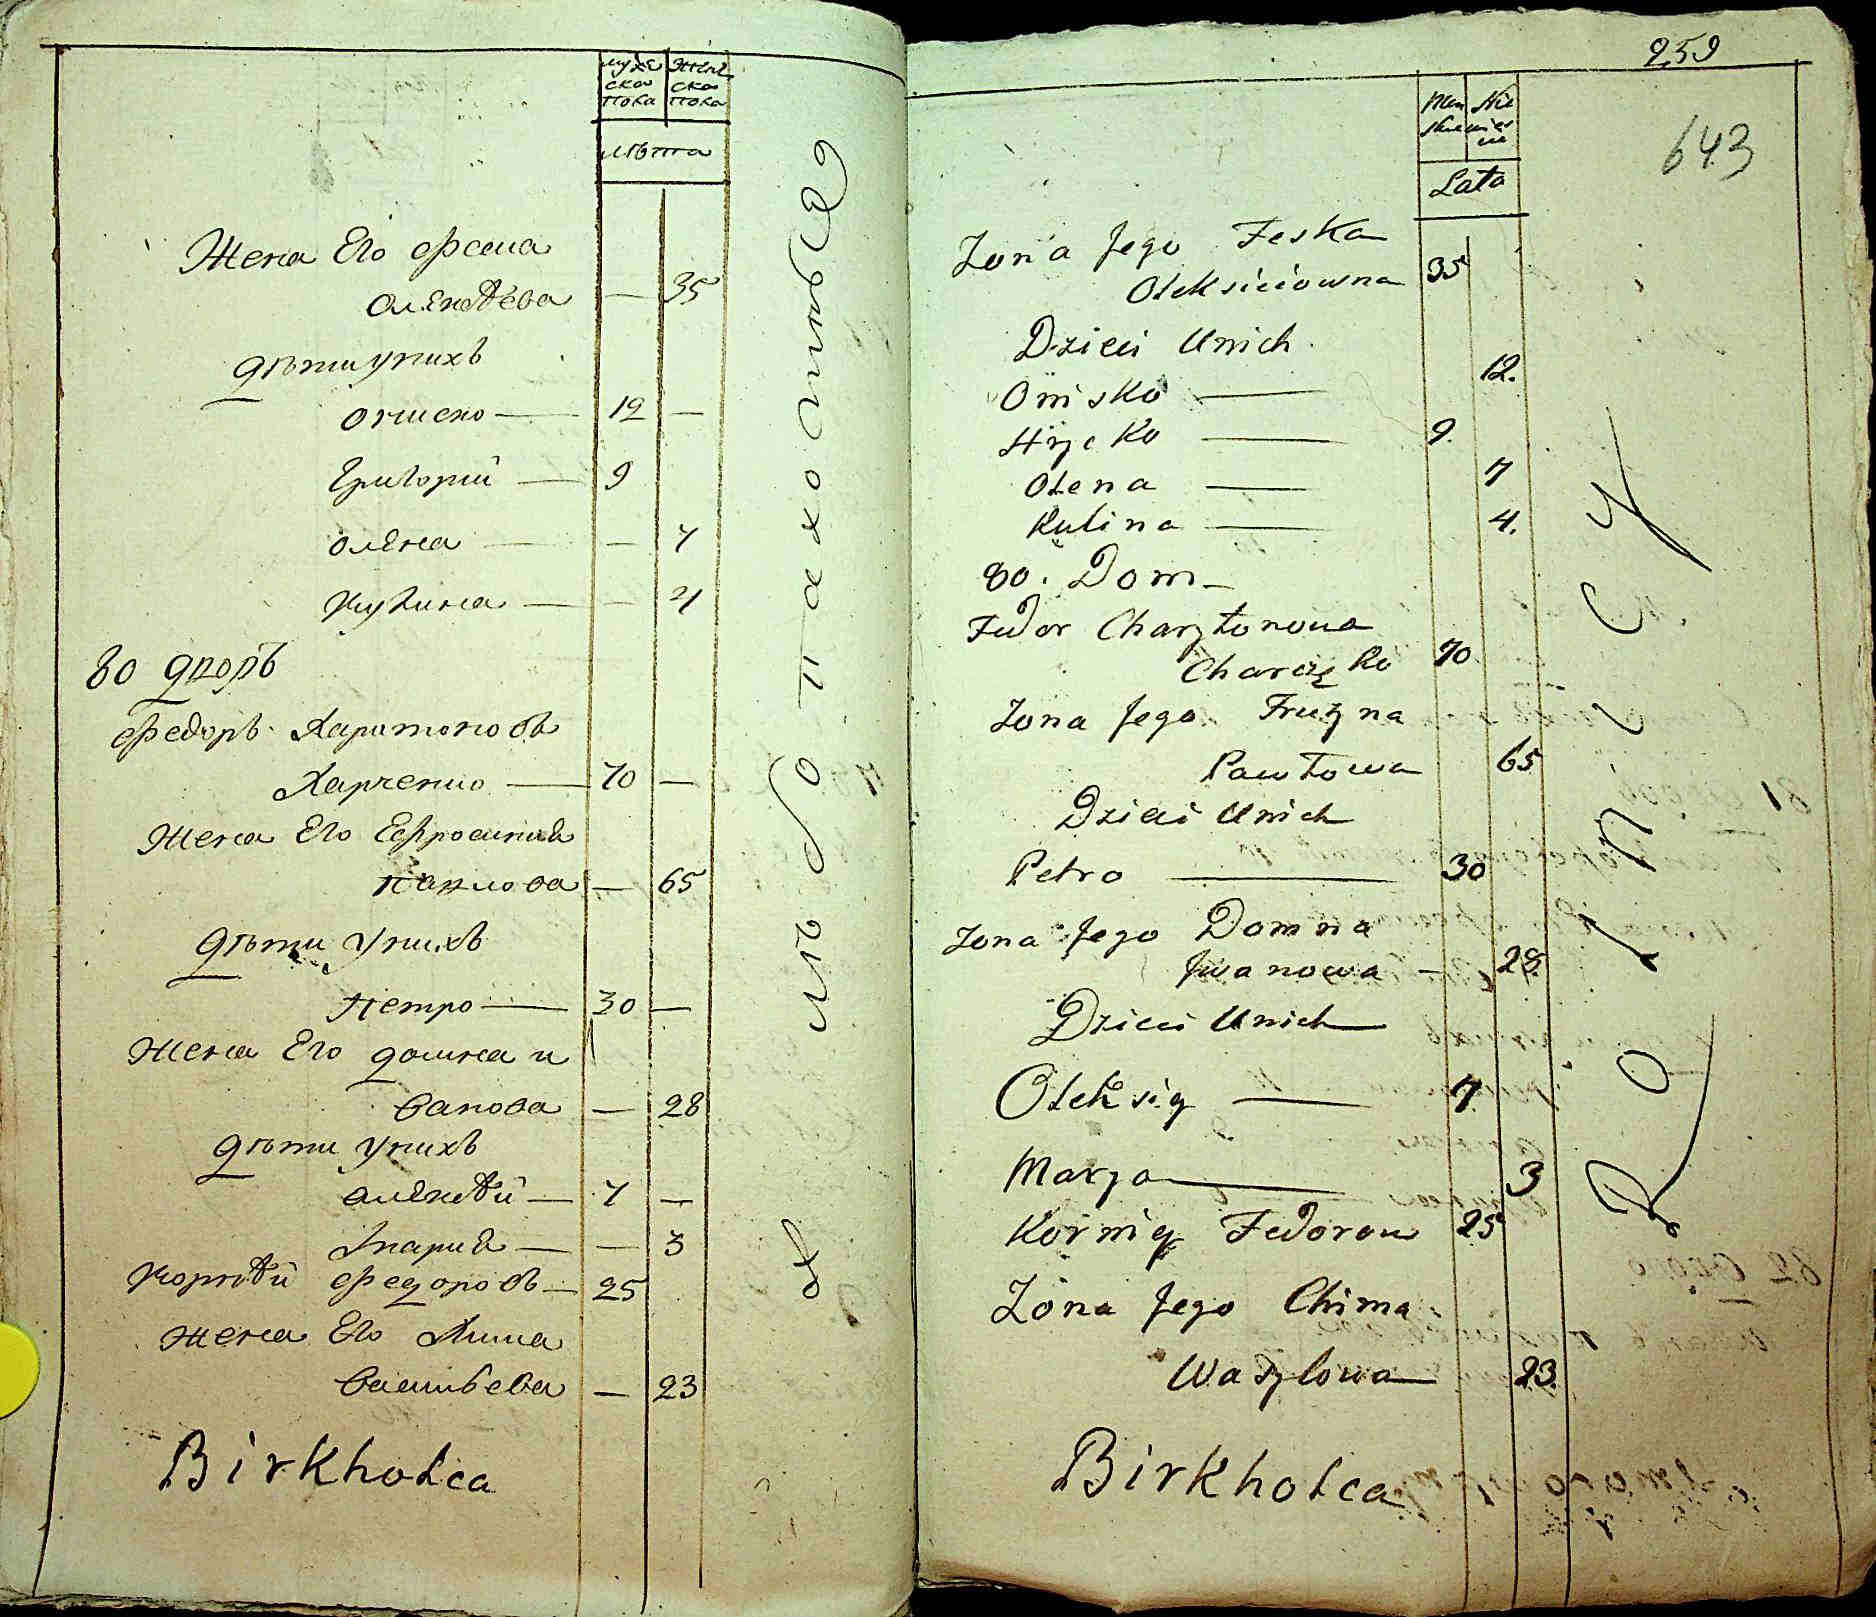 мужеска пола
женска пола
лѣта
Жена Его Феска
Олексѣева — 35
дѣти у нихъ
Ониско — 12 —
Григорий — 9
Олена — — 7
Кулина — — 4
80 дворъ
Федоръ Харитоновъ
Харченко — 70 —
Жена Его Ефросиния
Павлова — 65
дѣти у нихъ
Петро — 30 —
Жена Его Домна И
ванова — 28
дѣти у нихъ
Алексѣй — 7 —
Мария — — 3
Корнѣй Федоровъ — 25
жена Его Хима
Васильева — 23
Birkholca
хлѣбопахотные
259
643
Men
skie
Nie
wies
cie
Lata
Zona Jego Feska
Oleksieiowna 35
Dzieci Unich.
Onisko — 12.
Hrycko — 9.
Olena — 7
Kulina — 4.
80. Dom —
Fedor Charytonowa
Charczęko 70
Zona Jego Fruzyna
Pawłowa 65
Dzieci Unich
Petro — 30
Zona Jego Domna
Jwanowa — 28
Dzieci Unich
Oleksiy — 7
Marya — 3
Korniy Fedorow 25
Zona Jego Chima
Wasylowa 23.
Birkholca
Rolnicy